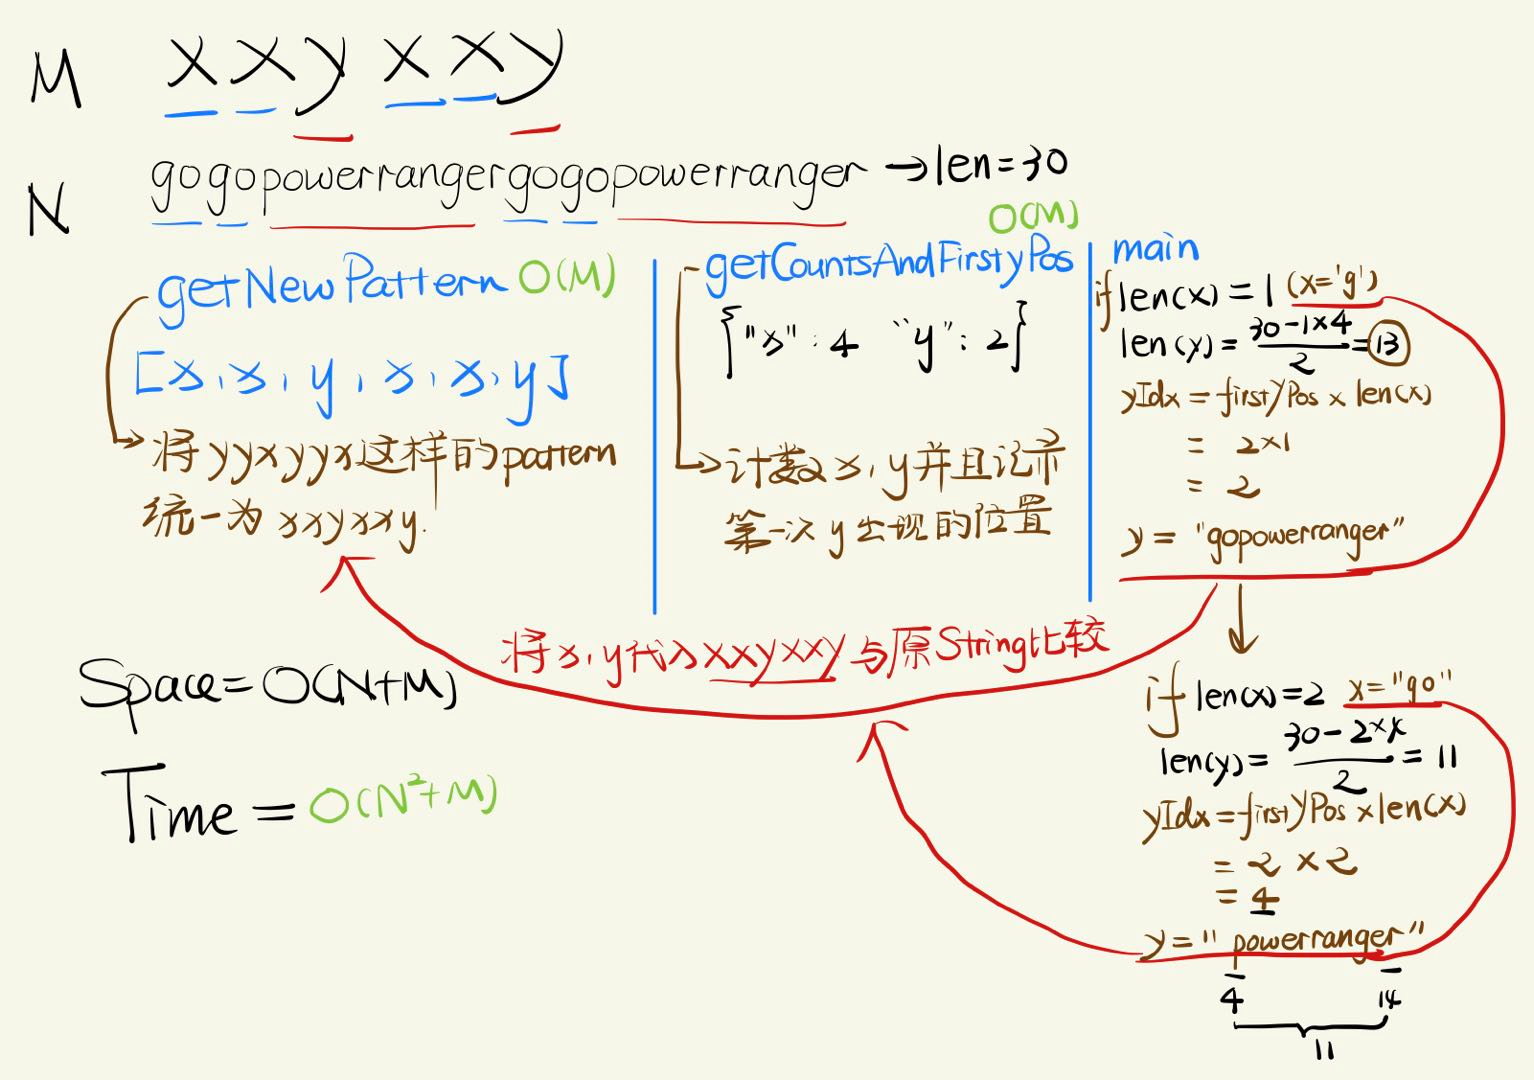 M xxyxxy
N gogopowerrangergogopowerranger → len=30
getNewPattern O(M)
[x, x, y, x, x, y]
将yyxyyx这样的pattern
统一为xxyxxy.
O(M)
getCountsAndFirstyPos
{"x": 4 "y": 2}
计数x,y并且记录
第一次y出现的位置
main
if len(x) = 1 (x='g')
len(y) = (30-1×4)/2 = 13
yIdx = firstYPos × len(x)
= 2×1
= 2
y = "gopowerranger"
将x,y代入xxyxxy与原String比较
if len(x)=2 x="go"
len(y) = (30-2×4)/2 = 11
yIdx = firstYPos × len(x)
= 2 × 2
= 4
y = "powerranger"
4 14
11
Space = O(N+M)
Time = O(N²+M)